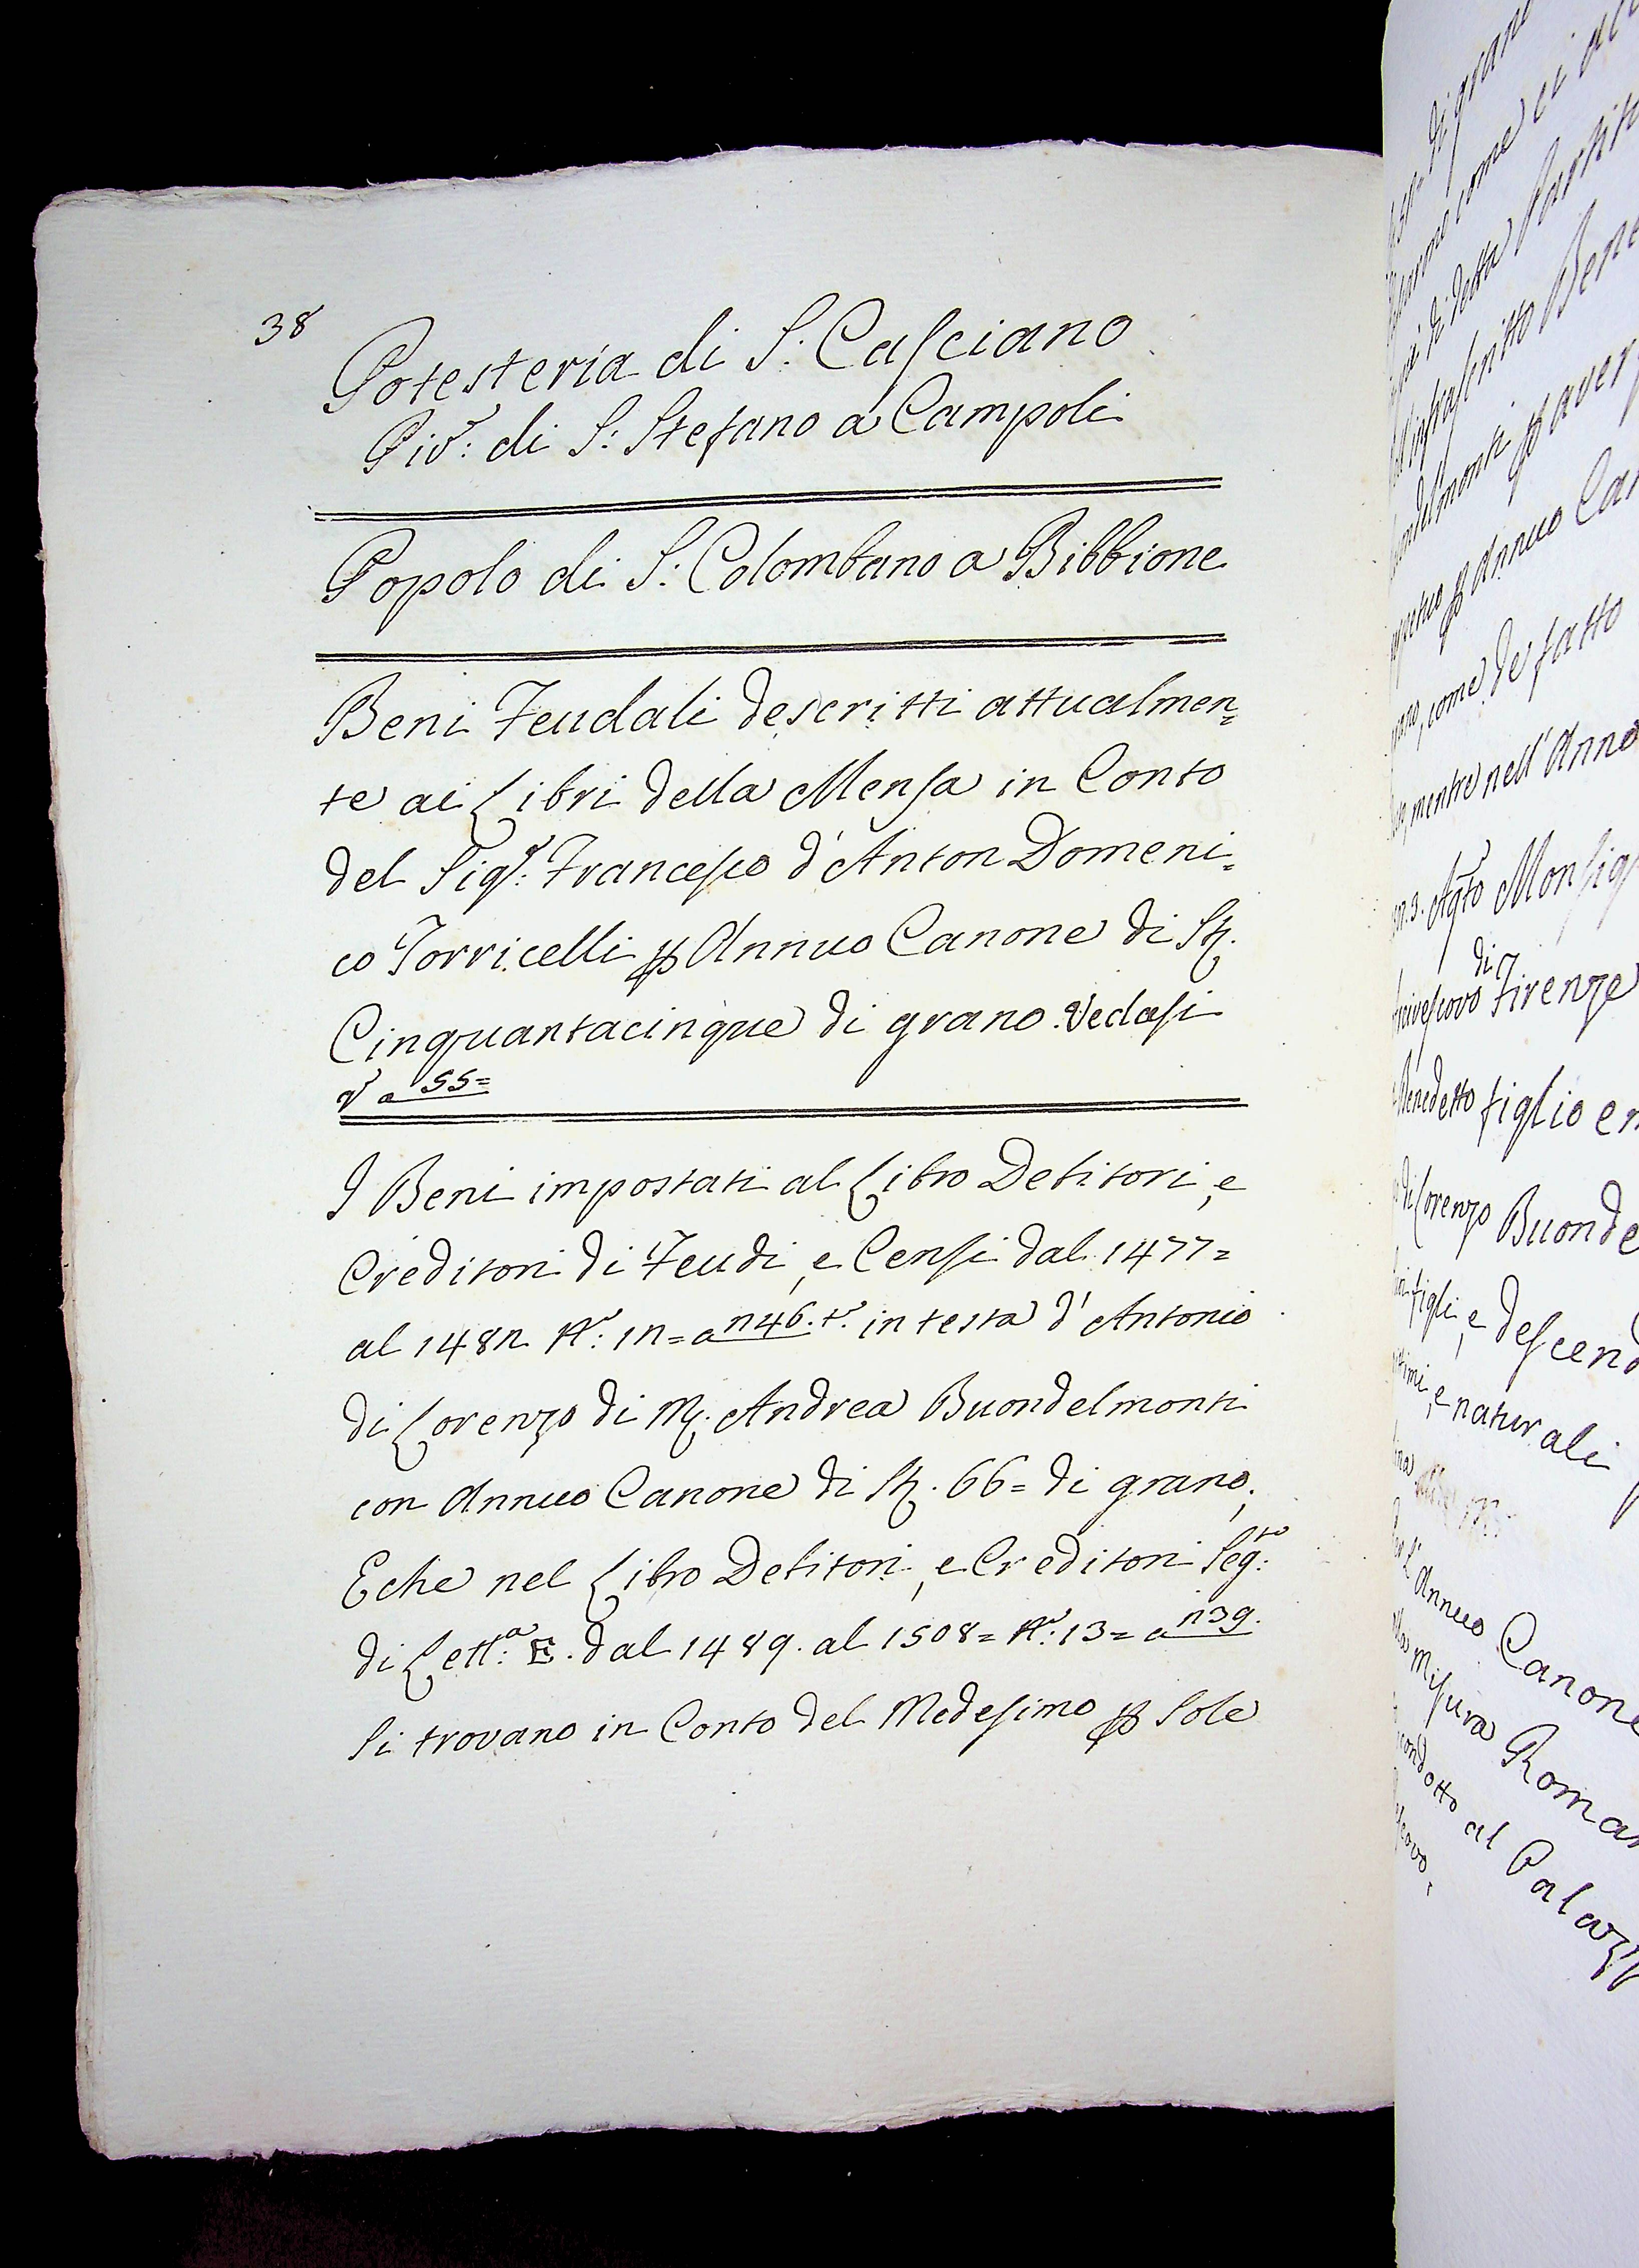 38
Potesteria di S: Casciano
Piv.e: di S: Stefano a Campoli
Popolo di S: Colombano a Bibbione
Beni Feudali descritti attualmen=
te ai Libri della Mensa in Conto
del Sigr: Francesco d'Anton Domeni=
co Torricelli p Annuo Canone di St.
Cinquantacinque di grano. Vedasi
a 55=
I Beni impostati al Libro Debitori, e
Creditori di Feudi, e Censi dal 1477=
al 1482 No: 12= a 246. to. in testa d'Antonio
di Lorenzo di M. Andrea Buondelmonti
con Annuo Canone di St. 66= di grano;
E che nel Libro Debitori, e Creditori Segto:
di Letta: E. dal 1489. al 1508= No: 13= a 239.
Si trovano in Conto del Medesimo p Sole
di grano
come
di detta
infrascritto Bene
aver
p Annuo Ca
come de fatto
mentre nell'Anno
Monsig
di
Firenze
Benedetto figlio
di Lorenzo Buonde
figli, e descend
e naturali
Annuo Canone
Misura Roma
condotto al Palazz